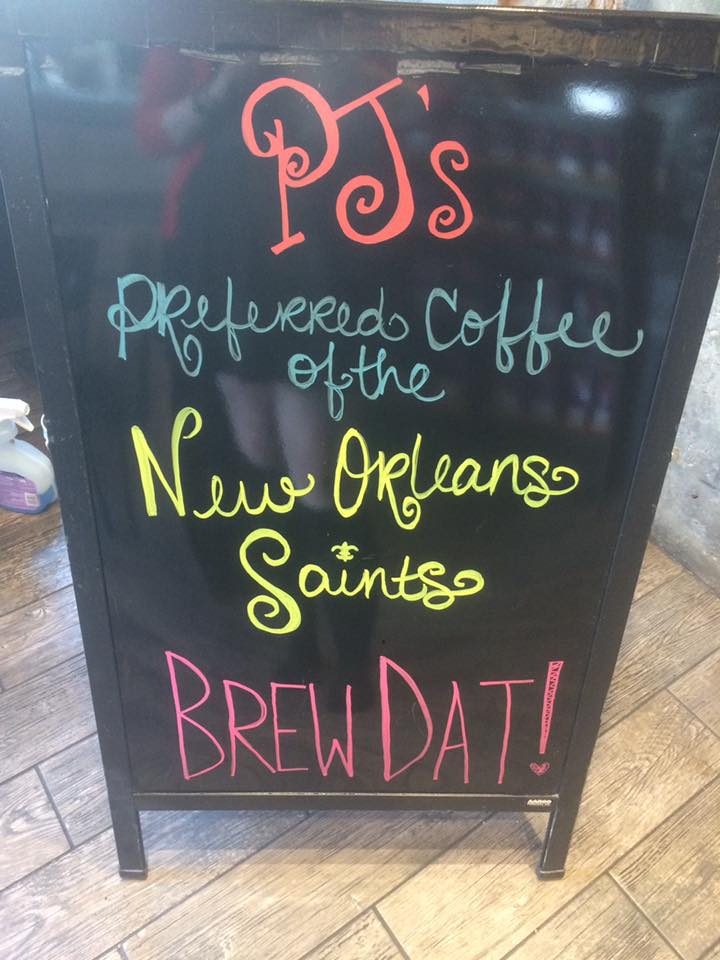 PJ's
Preferred Coffee
of the
New Orleans
Saints
BREW DAT!